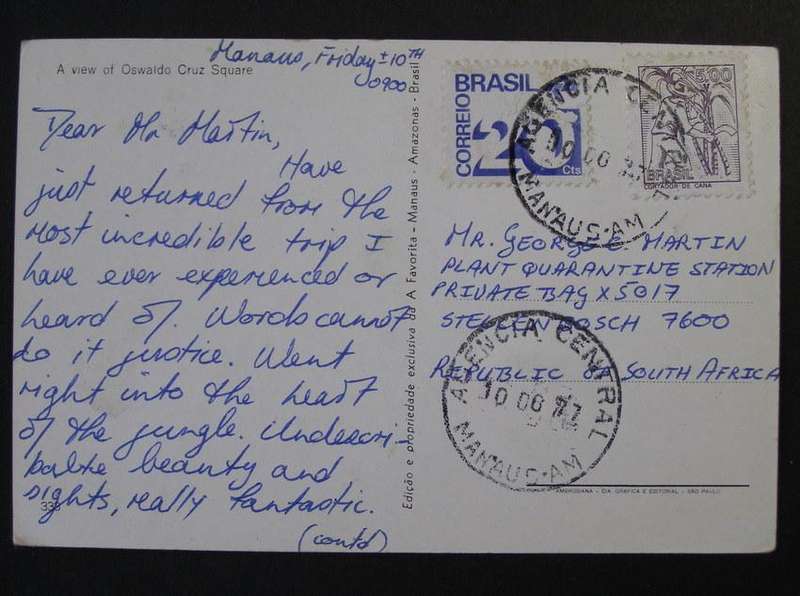 Manaus, Friday ±10TH
0900
A view of Oswaldo Cruz Square
Dear Mr Martin,
Have
just returned from the
most incredible trip I
have ever experienced or
heard of. Words cannot
do it justice. Went
right into the heart
of the jungle. Undescri-
balbe beauty and
sights, really fantastic.
(contd)
Edição e propriedade exclusiva da A Favorita - Manaus - Amazonas - Brasil
BRASIL
CORREIO
20
Cts
5,00
BRASIL
CORTADOR DE CANA
AGENCIA CENTRAL
MANAUS-AM
MR. GEORGE C. MARTIN
PLANT QUARANTINE STATION
PRIVATE BAG X5017
STELLENBOSCH 7600
REPUBLIC OF SOUTH AFRICA
AGENCIA CENTRAL
MANAUS-AM
AMBROSIANA - CIA. GRÁFICA E EDITORIAL - SÃO PAULO